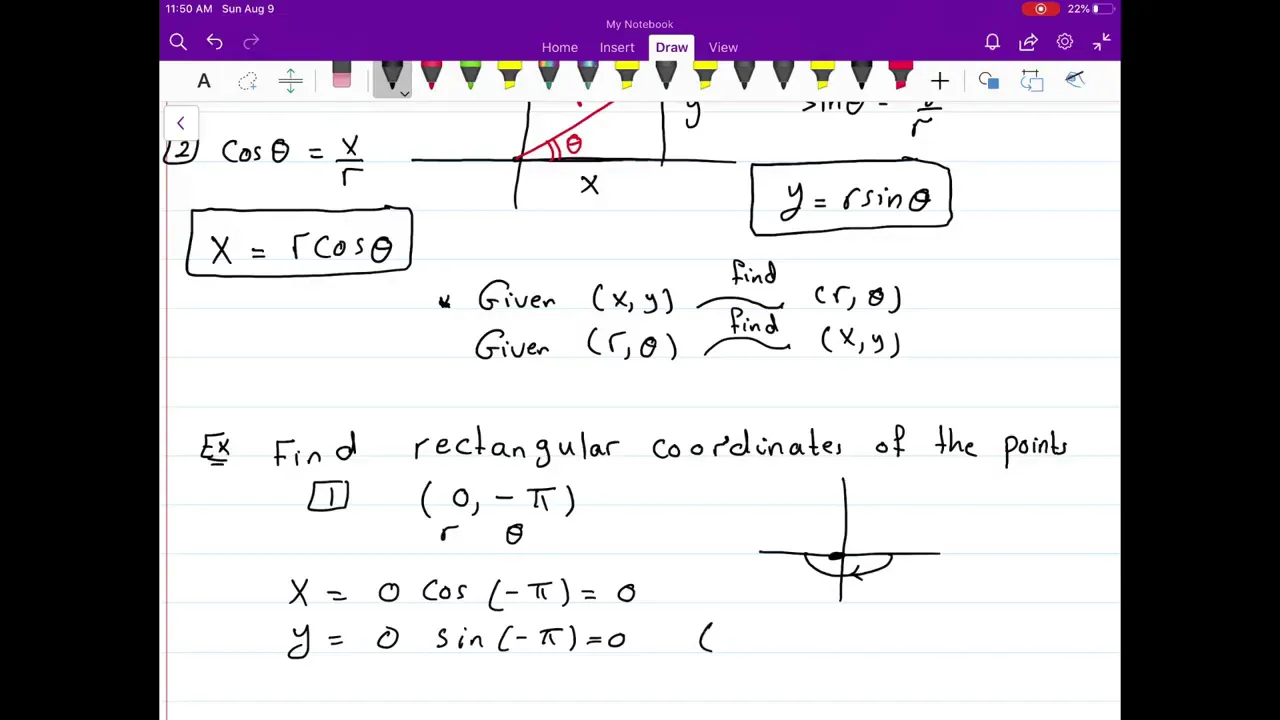 11:50 AM Sun Aug 9
22%
My Notebook
Home Insert Draw View
A
y
sinθ = r
2 Cosθ = x/r
θ
x
y = rsinθ
X = rcosθ
* Given (x, y) find (r, θ)
Given (r, θ) find (x, y)
Ex Find rectangular coordinates of the points
1 (0, -π)
r θ
X = 0 cos (-π) = 0
y = 0 sin (-π) = 0 (